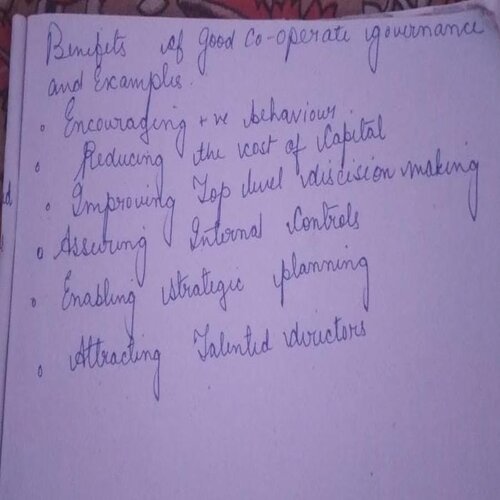 Benefits of good co-operate governance
and Examples.
Encouraging +ve behaviour.
Reducing the cost of Capital
Improving Top level discision making
Assuring Internal Controls
Enabling strategic planning
Attracting Talented directors